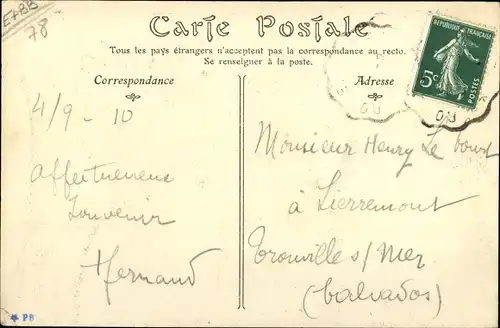 E7BB
78
Carte Postale
Tous les pays étrangers n'acceptent pas la correspondance au recto.
Se renseigner à la poste.
Correspondance
Adresse
RÉPUBLIQUE FRANÇAISE
5c
POSTES
4/9 - 10
Affectueux
Souvenir
Fernand
Monsieur Henry Le
à Lierremont
Trouville s/ Mer
(Calvados)
PB